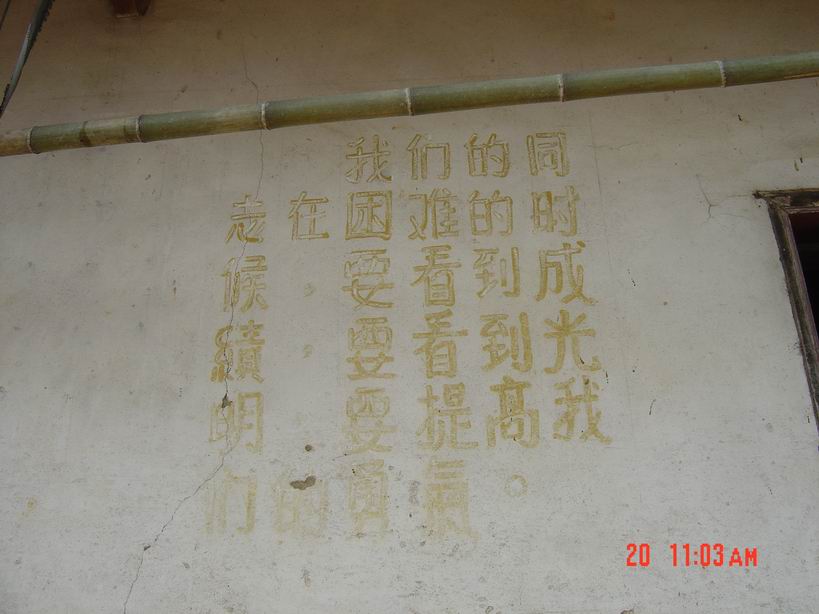 我们的同
志在困难的时
候，要看到成
績，要看到光
明，要提高我
们的勇氣。
20 11:03 AM